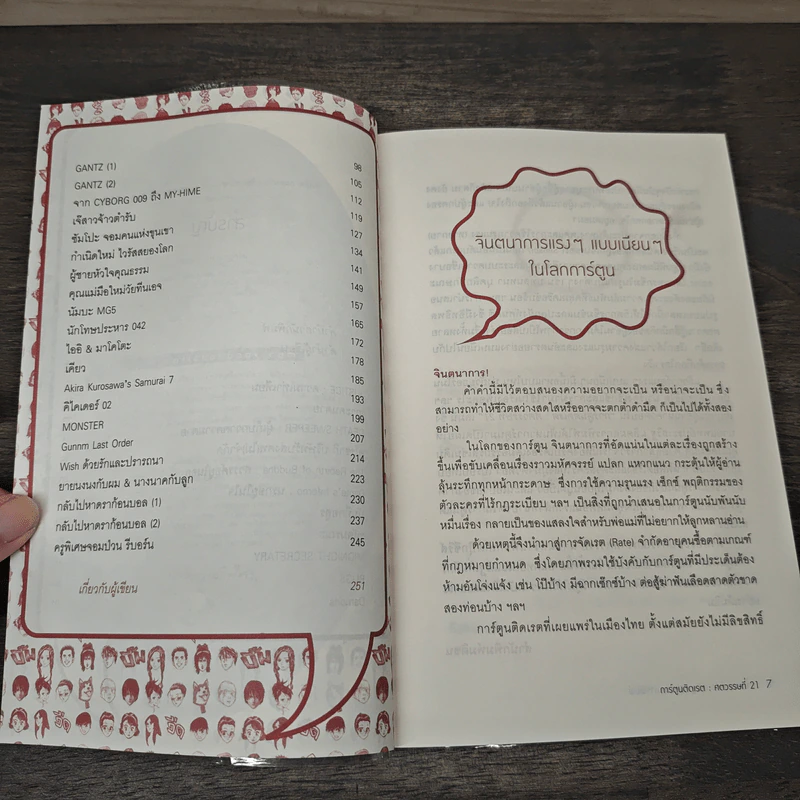 GANTZ (1) 98
GANTZ (2) 105
จาก CYBORG 009 ถึง MY-HIME 112
เจ๊สาวจ้าวตำรับ 119
ซัมโปะ จอมคนแห่งขุนเขา 127
กำเนิดใหม่ ไวรัสสยองโลก 134
ผู้ชายหัวใจคุณธรรม 141
คุณแม่มือใหม่วัยทีนเอจ 149
นัมบะ MG5 157
นักโทษประหาร 042 165
ไอฮิ & มาโคโตะ 172
เคียว 178
Akira Kurosawa's Samurai 7 185
คิไคเดอร์ 02 193
MONSTER 199
Gunnm Last Order 207
Wish ด้วยรักและปรารถนา 214
ยายนงนงกับผม & นางนาคกับลูก 223
กลับไปหาดราก้อนบอล (1) 230
กลับไปหาดราก้อนบอล (2) 237
ครูพิเศษจอมป่วน รีบอร์น 245
เกี่ยวกับผู้เขียน 251
จินตนาการแรงๆ แบบเนียนๆ
ในโลกการ์ตูน
จินตนาการ!
คำคำนี้มีไว้ตอบสนองความอยากจะเป็น หรือน่าจะเป็น ซึ่ง
สามารถทำให้ชีวิตสว่างสดใสหรืออาจจะตกต่ำดำมืด ก็เป็นไปได้ทั้งสอง
อย่าง
ในโลกของการ์ตูน จินตนาการที่อัดแน่นในแต่ละเรื่องถูกสร้าง
ขึ้นเพื่อขับเคลื่อนเรื่องราวมหัศจรรย์ แปลก แหวกแนว กระตุ้นให้ผู้อ่าน
ลุ้นระทึกทุกหน้ากระดาษ ซึ่งการใช้ความรุนแรง เซ็กซ์ พฤติกรรมของ
ตัวละครที่ไร้กฎระเบียบ ฯลฯ เป็นสิ่งที่ถูกนำเสนอในการ์ตูนนับพันนับ
หมื่นเรื่อง กลายเป็นของแสลงใจสำหรับพ่อแม่ที่ไม่อยากให้ลูกหลานอ่าน
ด้วยเหตุนี้จึงนำมาสู่การจัดเรต (Rate) จำกัดอายุคนซื้อตามเกณฑ์
ที่กฎหมายกำหนด ซึ่งโดยภาพรวมใช้บังคับกับการ์ตูนที่มีประเด็นต้อง
ห้ามอันโจ่งแจ้ง เช่น โป๊บ้าง มีฉากเซ็กซ์บ้าง ต่อสู้ฆ่าฟันเลือดสาดตัวขาด
สองท่อนบ้าง ฯลฯ
การ์ตูนติดเรตที่เผยแพร่ในเมืองไทย ตั้งแต่สมัยยังไม่มีลิขสิทธิ์
การ์ตูนติดเรต : ศตวรรษที่ 21 7